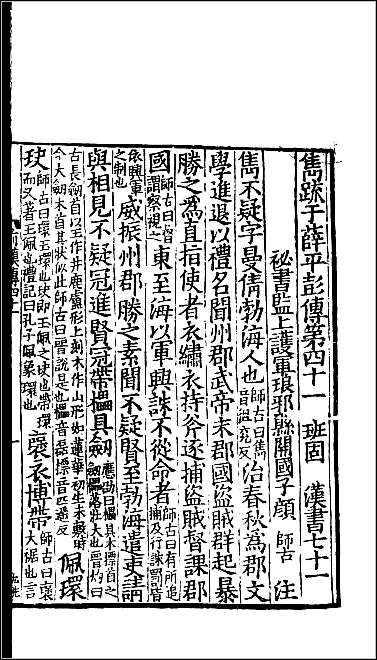 雋疏于薛平彭傳第四十一 班固 漢書七十一
秘書監上護軍琅邪縣開國子顏 師古 注
雋不疑字曼倩勃海人也師古曰雋音徂兗反治春秋爲郡文
學進退以禮名聞州郡武帝末郡國盜賊群起暴
勝之爲直指使者衣繡衣持斧逐捕盜賊督課郡
國師古曰督謂察視之東至海以軍興誅不從命者師古曰有所追捕及行誅罰皆
依興軍之制也威振州郡勝之素聞不疑賢至勃海遣吏請
與相見不疑冠進賢冠帶櫑具劒應劭曰櫑具木標首之劒櫑落壯大也晉灼曰
古長劒首以玉作井鹿盧形上刻木作山形如蓮華初生未敷時
今大劒木首其狀似此師古曰晉說是也櫑音磊標音匹遙反佩環
玦師古曰環玉環也玦即玉佩之玦也帶環而又著玉佩也禮記曰孔子佩象環也襃衣博帶師古曰襃大裾也言
前漢傳四十一